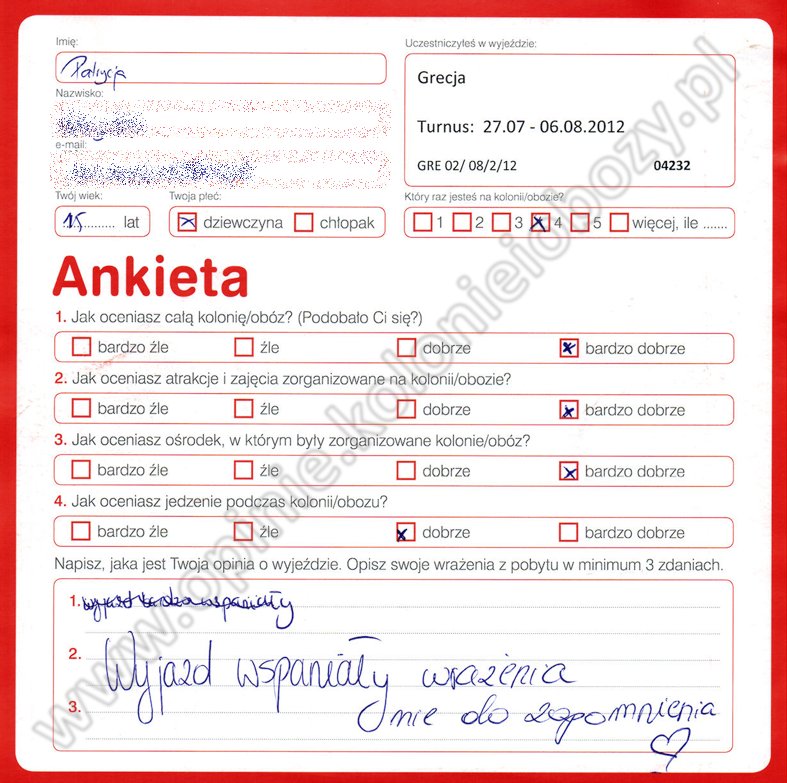 Imię:
Patrycja
Nazwisko:
e-mail:
Twój wiek:
15 lat
Twoja płeć:
dziewczyna chłopak
Uczestniczyłeś w wyjeździe:
Grecja
Turnus: 27.07 - 06.08.2012
GRE 02/ 08/2/12 04232
Który raz jesteś na kolonii/obozie?
1 2 3 4 5 więcej, ile .......
Ankieta
1. Jak oceniasz całą kolonię/obóz? (Podobało Ci się?)
bardzo źle źle dobrze bardzo dobrze
2. Jak oceniasz atrakcje i zajęcia zorganizowane na kolonii/obozie?
bardzo źle źle dobrze bardzo dobrze
3. Jak oceniasz ośrodek, w którym były zorganizowane kolonie/obóz?
bardzo źle źle dobrze bardzo dobrze
4. Jak oceniasz jedzenie podczas kolonii/obozu?
bardzo źle źle dobrze bardzo dobrze
Napisz, jaka jest Twoja opinia o wyjeździe. Opisz swoje wrażenia z pobytu w minimum 3 zdaniach.
1. wyjazd bardzo wspaniały
2. Wyjazd wspaniały wrażenia
3. nie do zapomnienia
www.opinie.kolonieiobozy.pl